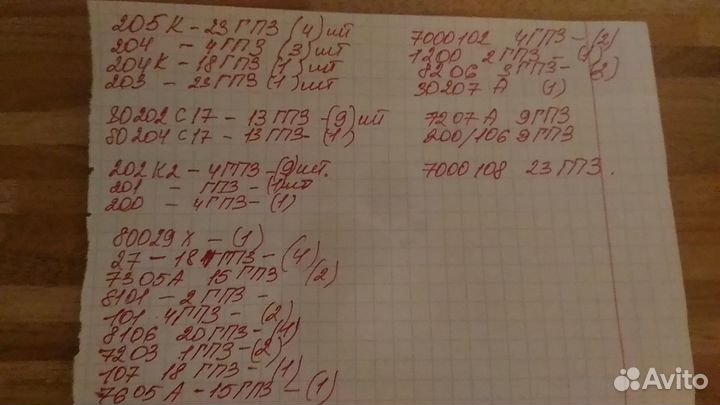 205К - 23 ГПЗ (4) шт
204 - 4 ГПЗ (3) шт
204К - 18 ГПЗ (1) шт
203 - 23 ГПЗ (1) шт
80202 С17 - 13 ГПЗ - (9) шт
80204 С17 - 13 ГПЗ - (1)
202 К2 - 4 ГПЗ - (9) шт.
201 - ГПЗ - (1) шт
200 - 4 ГПЗ - (1)
80029 Х - (1)
27 - 18 ГПЗ - (4)
7305 А 15 ГПЗ (2)
8101 - 2 ГПЗ -
101 4 ГПЗ - (2)
8106 20 ГПЗ - (1)
7203 1 ГПЗ - (2)
107 18 ГПЗ - (1)
7605 А - 15 ГПЗ - (1)
7000102 4 ГПЗ - (2)
1200 2 ГПЗ - (1)
8206 3 ГПЗ - (3)
30207 А (1)
7207 А 9 ГПЗ
200/106 9 ГПЗ
7000108 23 ГПЗ.
Avito